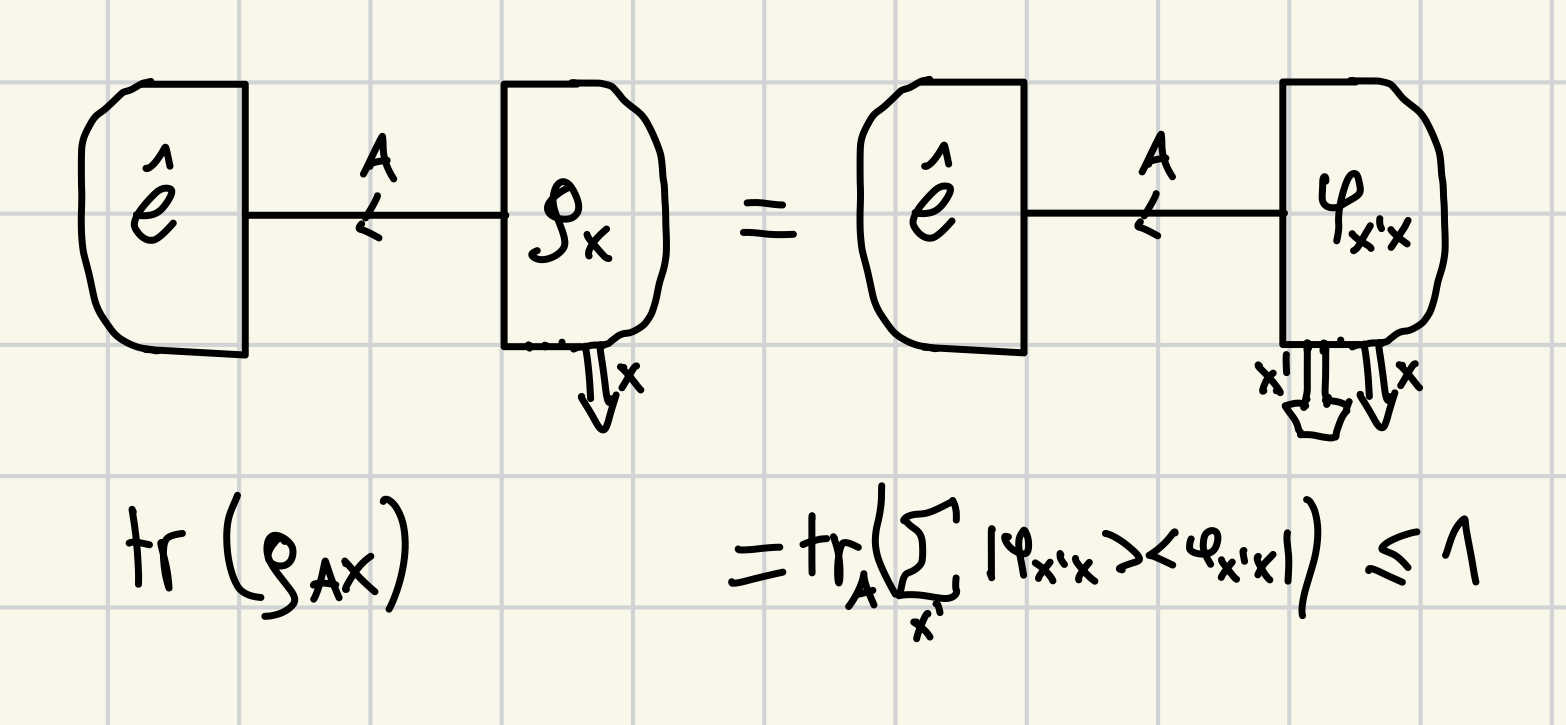 ê A ρ_X = ê A φ_{x'x}
x x' x
tr (ρ_{AX}) = tr_A(∑_{x'} |φ_{x'x}><φ_{x'x}|) ≤ 1